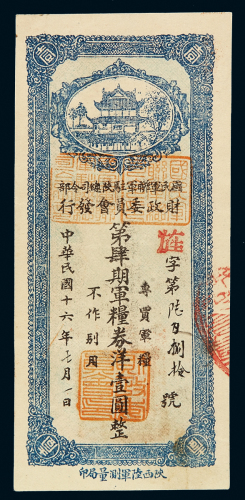 國民軍聯軍駐陝總司令部
財政委員會發行
字第陸百捌拾號
專買軍糧
不作別用
第肆期軍糧券洋壹圓整
中華民國十六年七月日
陝西陸軍測量局印